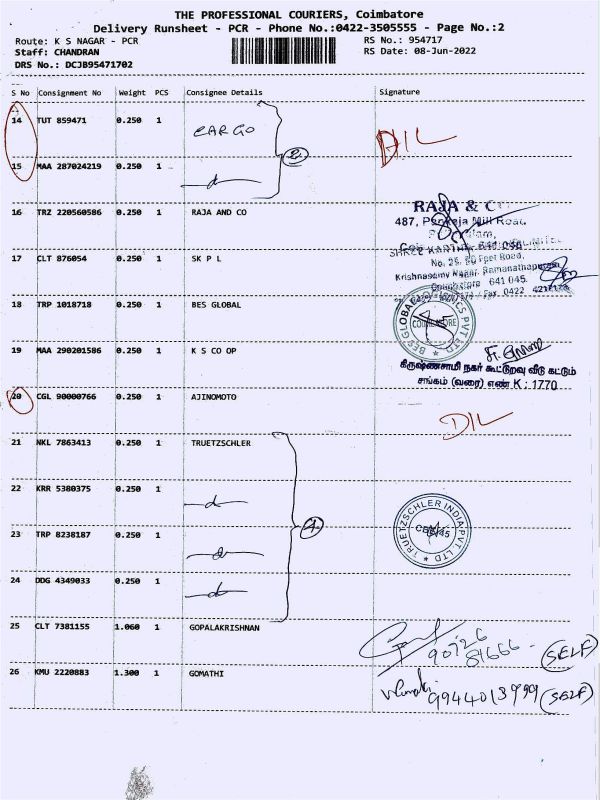 THE PROFESSIONAL COURIERS, Coimbatore
Delivery Runsheet - PCR - Phone No.:0422-3505555 - Page No.:2
Route: K S NAGAR - PCR RS No.: 954717
Staff: CHANDRAN RS Date: 08-Jun-2022
DRS No.: DCJB95471702
S No Consignment No Weight PCS Consignee Details Signature
14 TUT 859471 0.250 1 CARGO D/L
15 MAA 287024219 0.250 1 2
16 TRZ 220560586 0.250 1 RAJA AND CO
RAJA &
487, Mill Road,
17 CLT 876054 0.250 1 SK P L
No. 25, 80 Feet Road,
Krishnasamy Nagar, Ramanathapuram
Coimbatore 641 045.
Fax. 0422
18 TRP 1018718 0.250 1 BES GLOBAL
BES GLOBAL PVT LTD
19 MAA 290201586 0.250 1 K S CO OP
கிருஷ்ணசாமி நகர் கூட்டுறவு வீடு கட்டும்
சங்கம் (வரை) எண் K : 1770
20 CGL 90000766 0.250 1 AJINOMOTO D/L
21 NKL 7863413 0.250 1 TRUETZSCHLER
22 KRR 5380375 0.250 1
TRUETZSCHLER INDIA PVT. LTD
23 TRP 8238187 0.250 1 4
24 DDG 4349033 0.250 1
25 CLT 7381155 1.060 1 GOPALAKRISHNAN
90726
81666 (SELF)
26 KMU 2220883 1.300 1 GOMATHI
9944013999 (SELF)